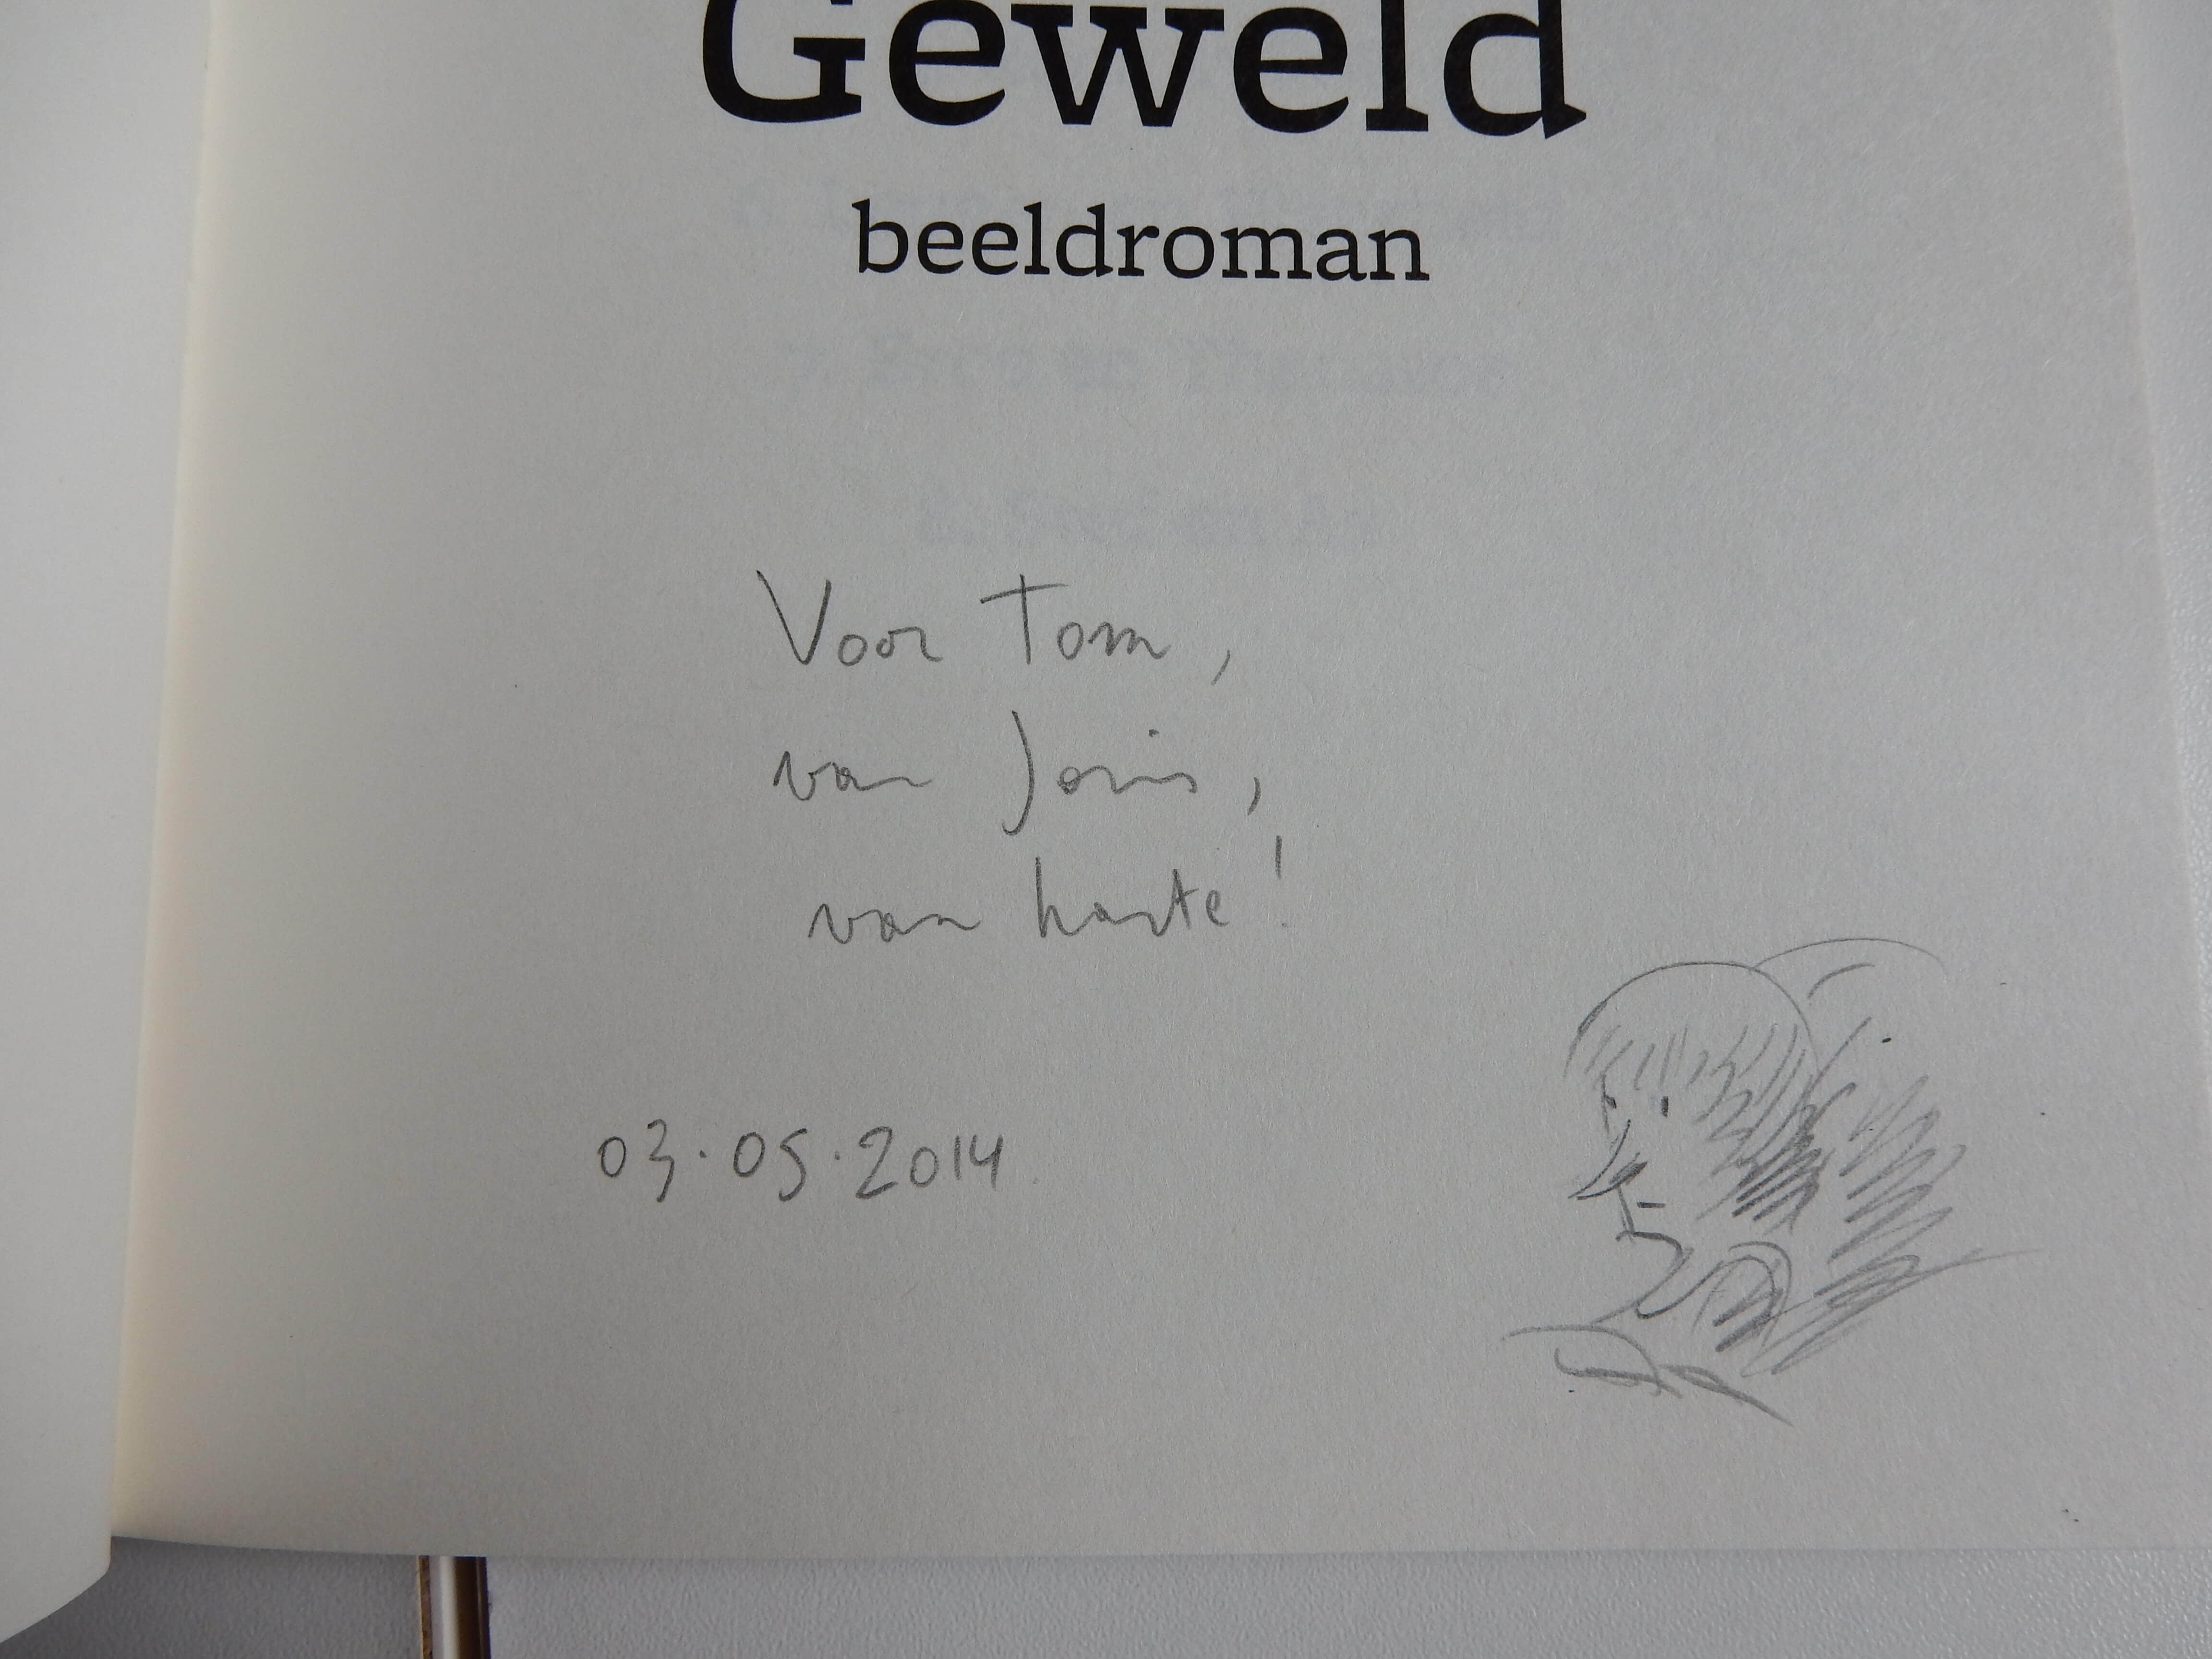 Geweld
beeldroman
Voor Tom,
van Joris,
van harte!
03.05.2014